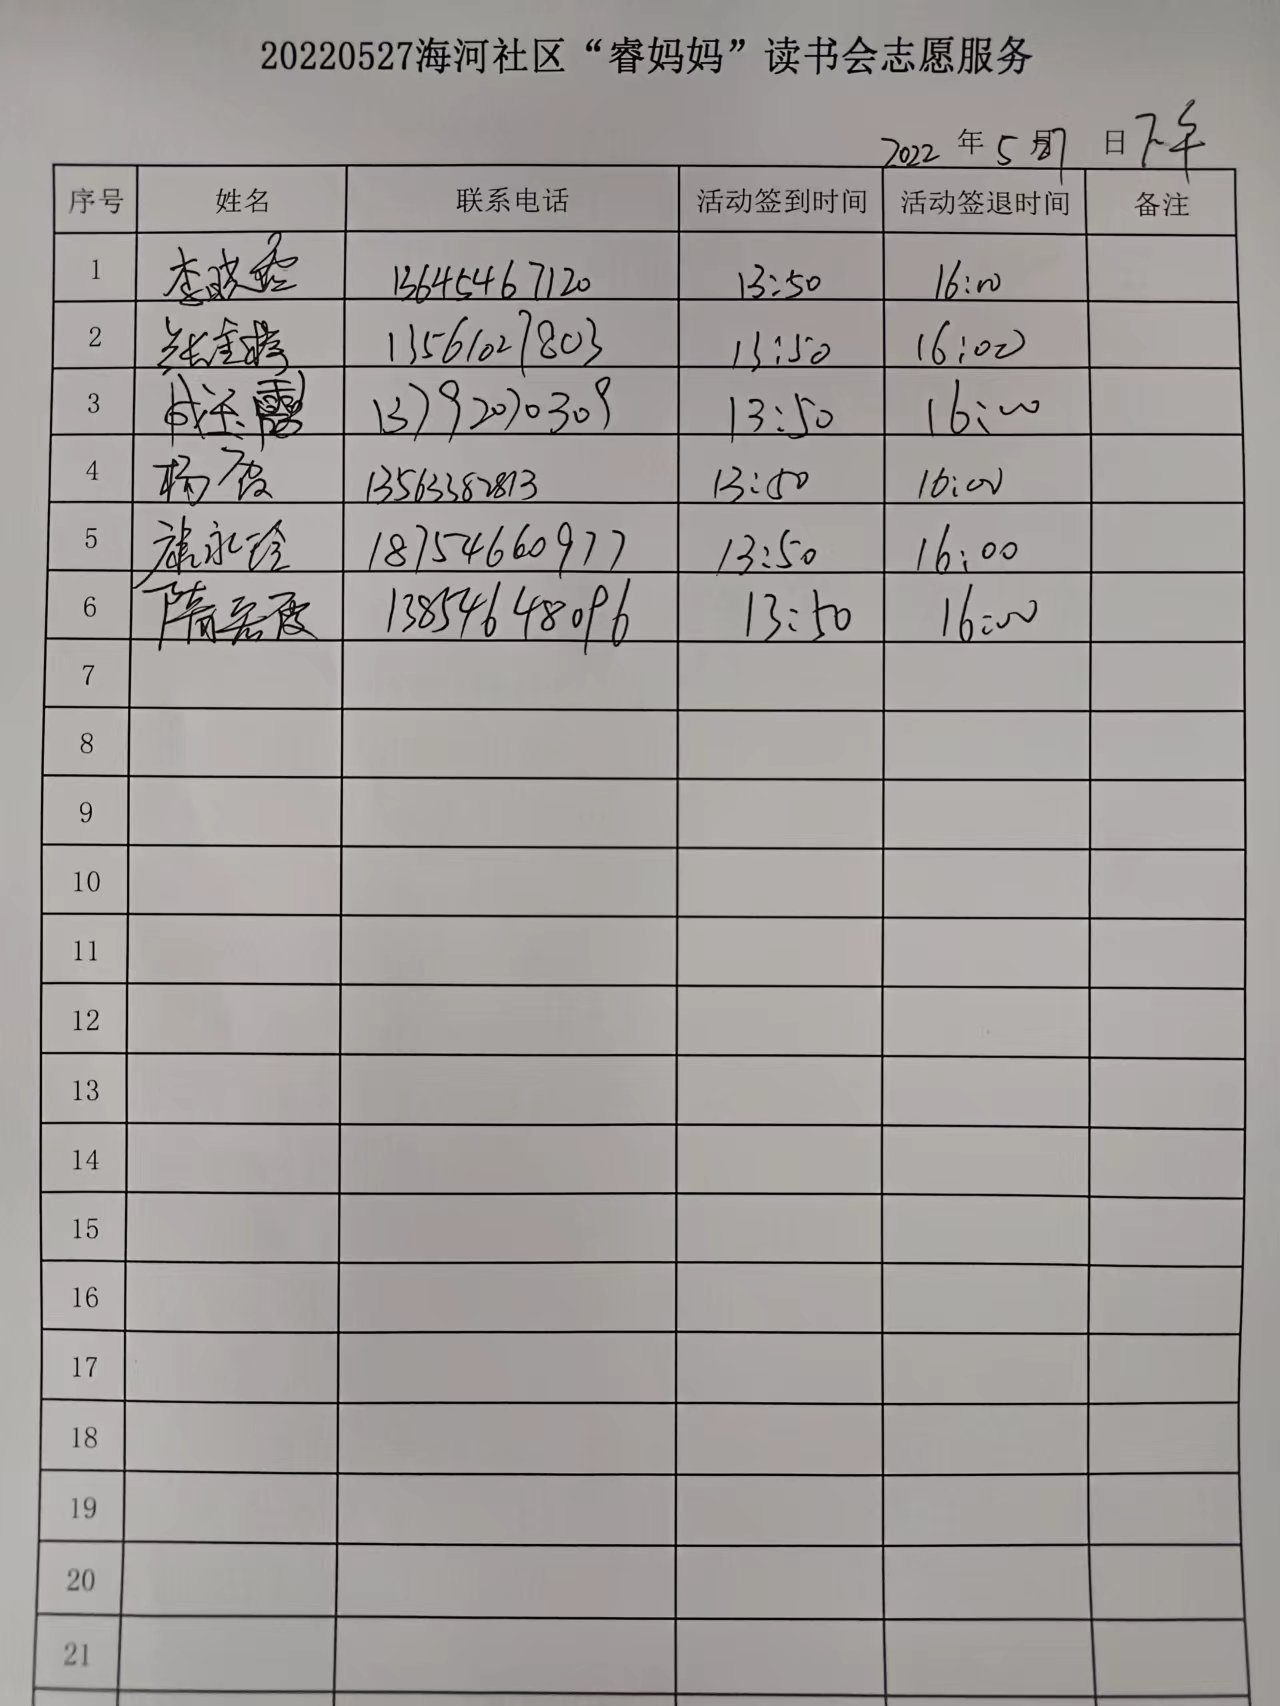 20220527海河社区“睿妈妈”读书会志愿服务
2022 年 5 月27 日下午
序号 姓名 联系电话 活动签到时间 活动签退时间 备注
1 李晓霞 13645467120 13:50 16:00
2 张金 13561027803 13:50 16:00
3 成玉霞 13792070309 13:50 16:00
4 杨霞 13563382813 13:50 16:00
5 永玲 18754660977 13:50 16:00
6 隋云霞 13854648096 13:50 16:00
7
8
9
10
11
12
13
14
15
16
17
18
19
20
21